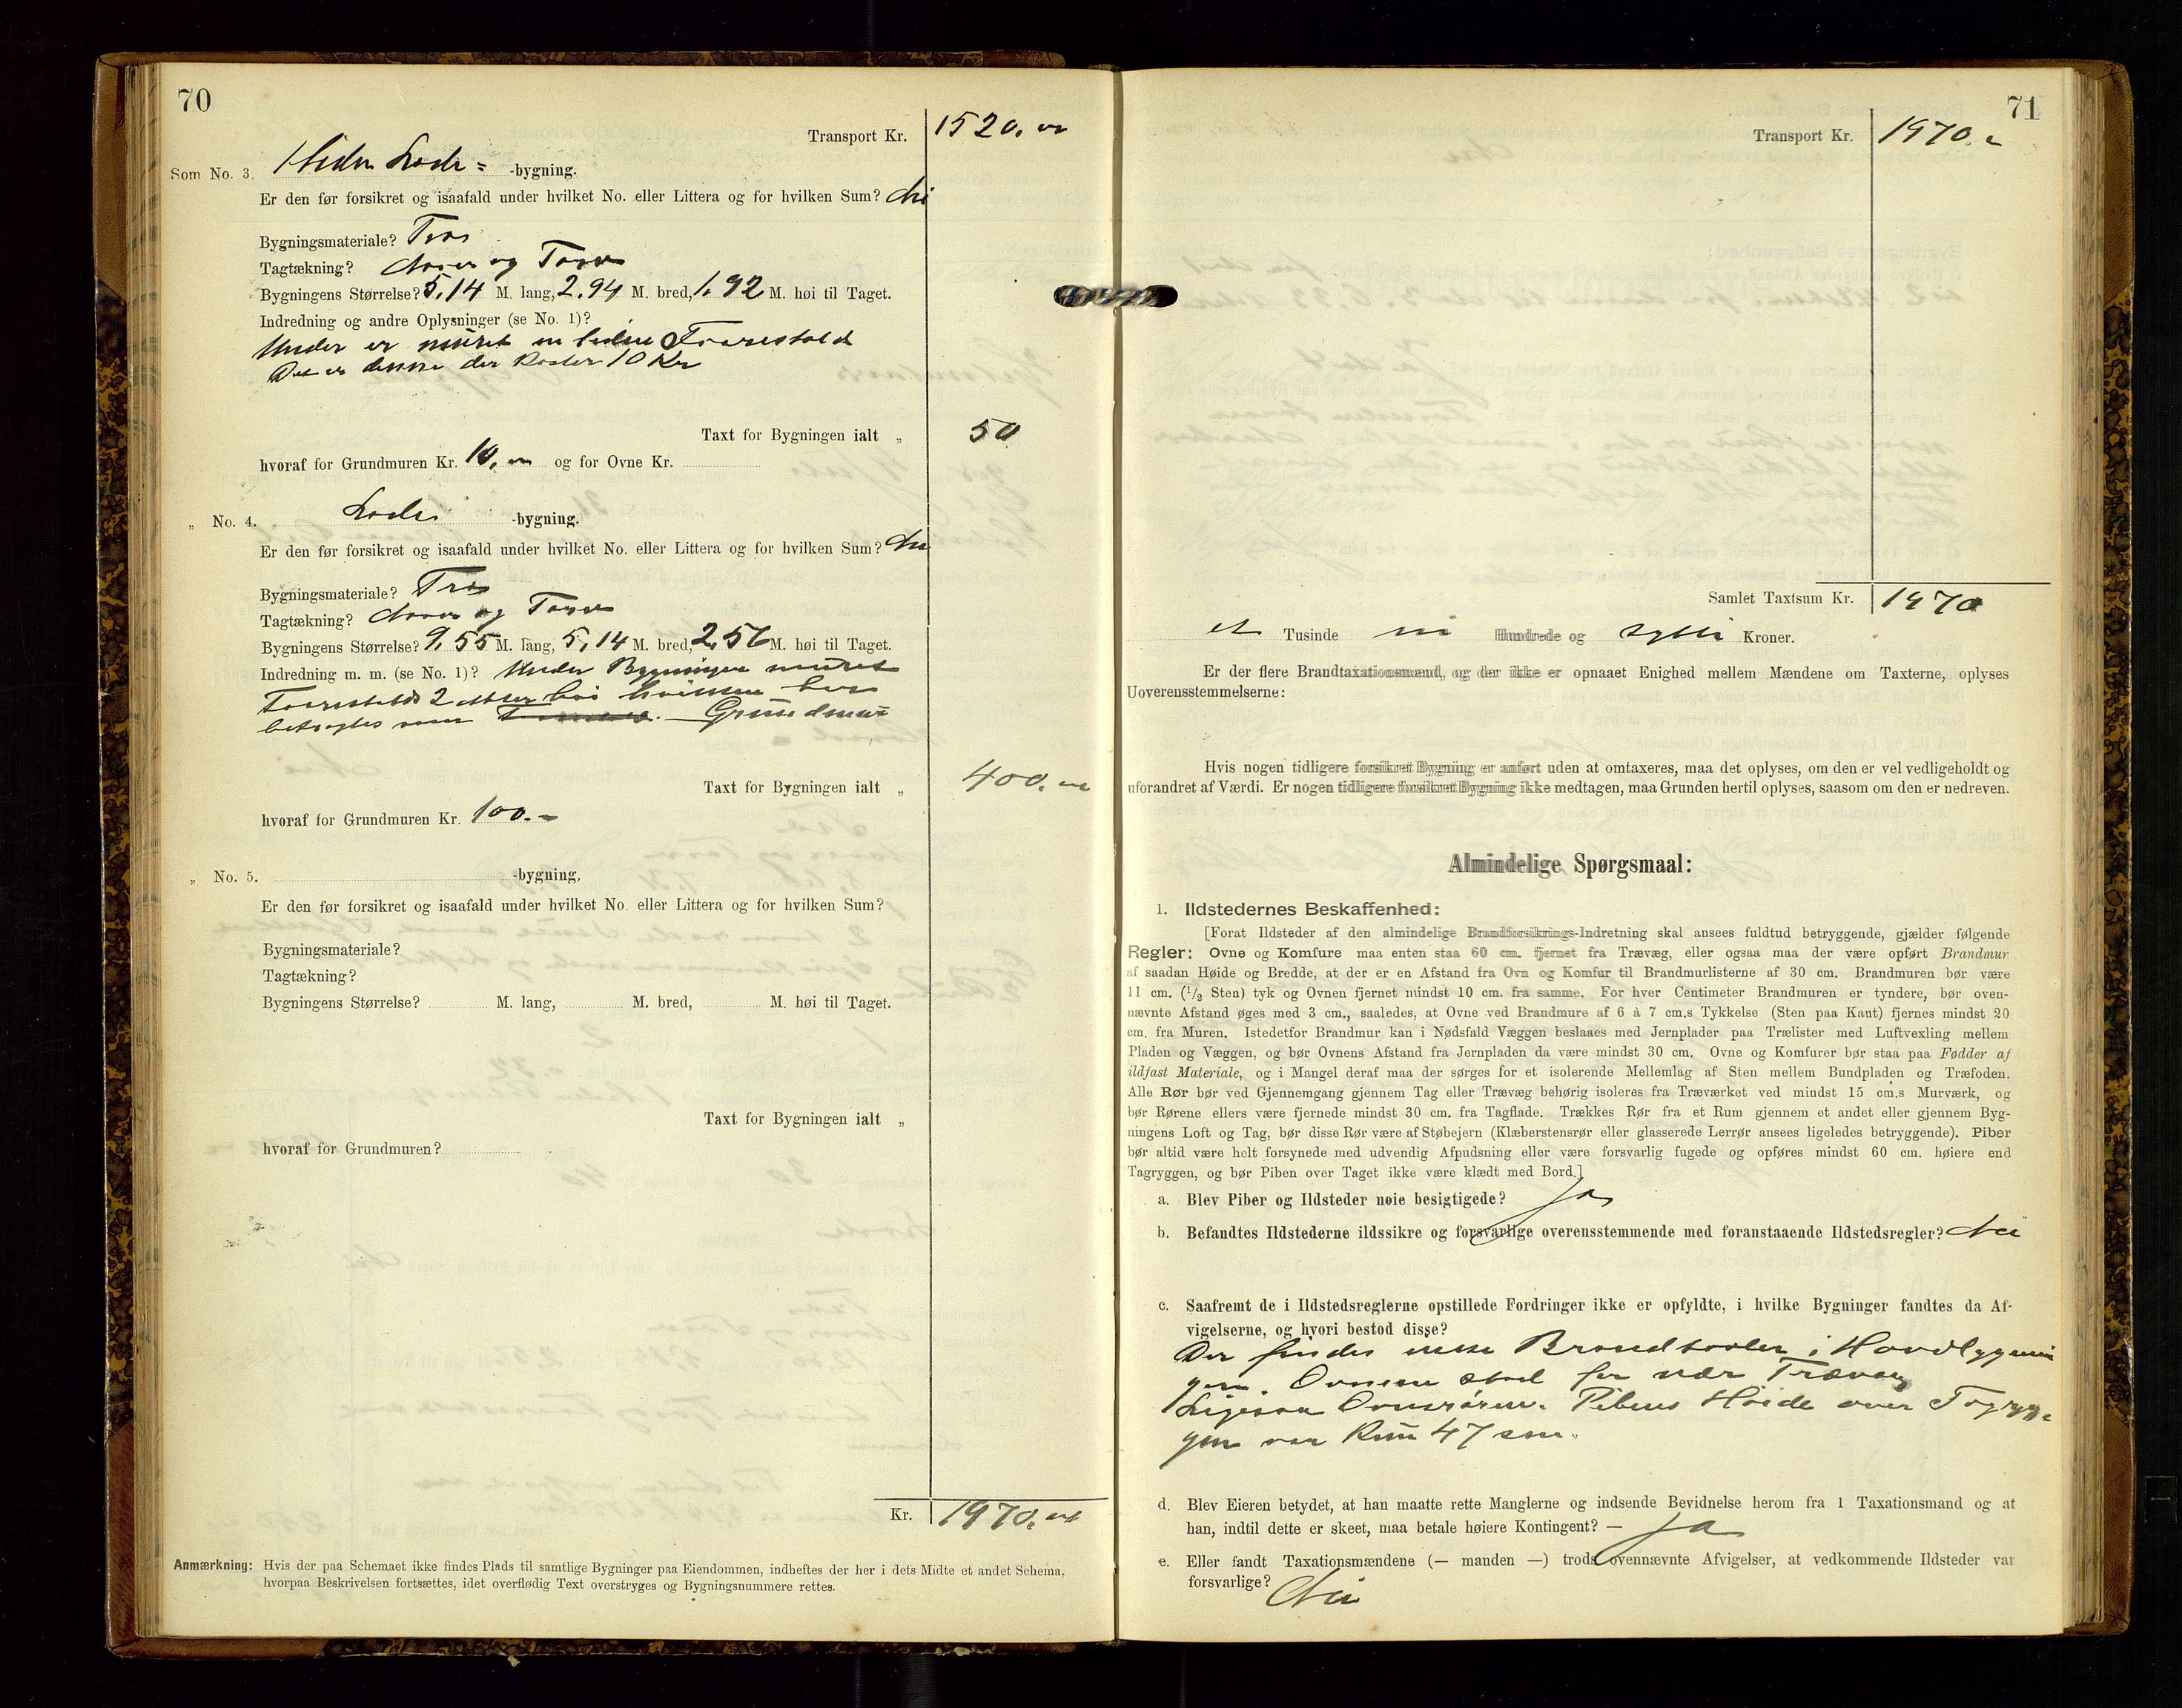 70
Transport Kr. 1520.
Som No. 3. Liden Lade= -bygning.
Er den før forsikret og isaafald under hvilket No. eller Littera og for hvilken Sum? Nei
Bygningsmateriale? Træ
Tagtækning? Næver og Torv
Bygningens Størrelse? 5,14 M. lang, 2,94 M. bred, 1,92 M. høi til Taget.
Indredning og andre Oplysninger (se No. 1)?
Under er muret en liden Faarestald
Det er denne der koster 10 Kr
Taxt for Bygningen ialt „ 50
hvoraf for Grundmuren Kr. 10, og for Ovne Kr.
„ No. 4. Lade -bygning.
Er den før forsikret og isaafald under hvilket No. eller Littera og for hvilken Sum? Nei
Bygningsmateriale? Træ
Tagtækning? Næver og Torv
Bygningens Størrelse? 9,55 M. lang, 5,14 M. bred, 2,56 M. høi til Taget.
Indredning m. m. (se No. 1)? Under Bygningen muret
Faarestald 2 hvilken her
betragtes som Grundmur
Taxt for Bygningen ialt „ 400.
hvoraf for Grundmuren Kr. 100.-
„ No. 5. -bygning.
Er den før forsikret og isaafald under hvilket No. eller Littera og for hvilken Sum?
Bygningsmateriale?
Tagtækning?
Bygningens Størrelse? M. lang, M. bred, M. høi til Taget.
Taxt for Bygningen ialt „
hvoraf for Grundmuren?
Kr. 1970.
Anmærkning: Hvis der paa Schemaet ikke findes Plads til samtlige Bygninger paa Eiendommen, indheftes der her i dets Midte et andet Schema,
hvorpaa Beskrivelsen fortsættes, idet overflødig Text overstryges og Bygningsnummere rettes.
71
Transport Kr. 1970.
Samlet Taxtsum Kr. 1970
et Tusinde ni Hundrede og sytti Kroner.
Er der flere Brandtaxationsmænd, og der ikke er opnaaet Enighed mellem Mændene om Taxterne, oplyses
Uoverensstemmelserne:
Hvis nogen tidligere forsikret Bygning er anført uden at omtaxeres, maa det oplyses, om den er vel vedligeholdt og
uforandret af Værdi. Er nogen tidligere forsikret Bygning ikke medtagen, maa Grunden hertil oplyses, saasom om den er nedreven.
Almindelige Spørgsmaal:
1. Ildstedernes Beskaffenhed:
[Forat Ildsteder af den almindelige Brandforsikrings-Indretning skal ansees fuldtud betryggende, gjælder følgende
Regler: Ovne og Komfure maa enten staa 60 cm. fjernet fra Trævæg, eller ogsaa maa der være opført Brandmur
af saadan Høide og Bredde, at der er en Afstand fra Ovn og Komfur til Brandmurlisterne af 30 cm. Brandmuren bør være
11 cm. (1/2 Sten) tyk og Ovnen fjernet mindst 10 cm. fra samme. For hver Centimeter Brandmuren er tyndere, bør oven-
nævnte Afstand øges med 3 cm., saaledes, at Ovne ved Brandmure af 6 à 7 cm.s Tykkelse (Sten paa Kant) fjernes mindst 20
cm. fra Muren. Istedetfor Brandmur kan i Nødsfald Væggen beslaaes med Jernplader paa Trælister med Luftvexling mellem
Pladen og Væggen, og bør Ovnens Afstand fra Jernpladen da være mindst 30 cm. Ovne og Komfurer bør staa paa Fødder af
ildfast Materiale, og i Mangel deraf maa der sørges for et isolerende Mellemlag af Sten mellem Bundpladen og Træfoden.
Alle Rør bør ved Gjennemgang gjennem Tag eller Trævæg behørig isoleres fra Træværket ved mindst 15 cm.s Murværk, og
bør Rørene ellers være fjernede mindst 30 cm. fra Tagflade. Trækkes Rør fra et Rum gjennem et andet eller gjennem Byg-
ningens Loft og Tag, bør disse Rør være af Støbejern (Klæberstensrør eller glasserede Lerrør ansees ligeledes betryggende). Piber
bør altid være helt forsynede med udvendig Afpudsning eller være forsvarlig fugede og opføres mindst 60 cm. høiere end
Tagryggen, og bør Piben over Taget ikke være klædt med Bord.]
a. Blev Piber og Ildsteder nøie besigtigede? Ja
b. Befandtes Ildstederne ildssikre og forsvarlige overensstemmende med foranstaaende Ildstedsregler? Nei
c. Saafremt de i Ildstedsreglerne opstillede Fordringer ikke er opfyldte, i hvilke Bygninger fandtes da Af-
vigelserne, og hvori bestod disse?
Der findes ikke i Hovdbygnin
gen. Ovnene stod for nær Trævæg
Ligesaa Ovnsrøren. Pibens Høide over Tagryg=
gen var kun 47 cm.
d. Blev Eieren betydet, at han maatte rette Manglerne og indsende Bevidnelse herom fra 1 Taxationsmand og at
han, indtil dette er skeet, maa betale høiere Kontingent? — Ja
e. Eller fandt Taxationsmændene (— manden —) trods ovennævnte Afvigelser, at vedkommende Ildsteder var
forsvarlige? Nei